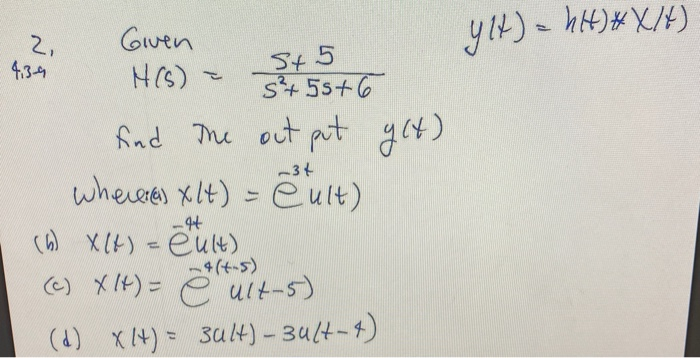 y(t) = h(t) * x(t)
2, Given
4.3-9 H(s) = (s+5)/(s²+5s+6)
find the output y(t)
where (a) x(t) = e^{-3t} u(t)
(b) x(t) = e^{-4t} u(t)
(c) x(t) = e^{-4(t-5)} u(t-5)
(d) x(t) = 3u(t) - 3u(t-4)